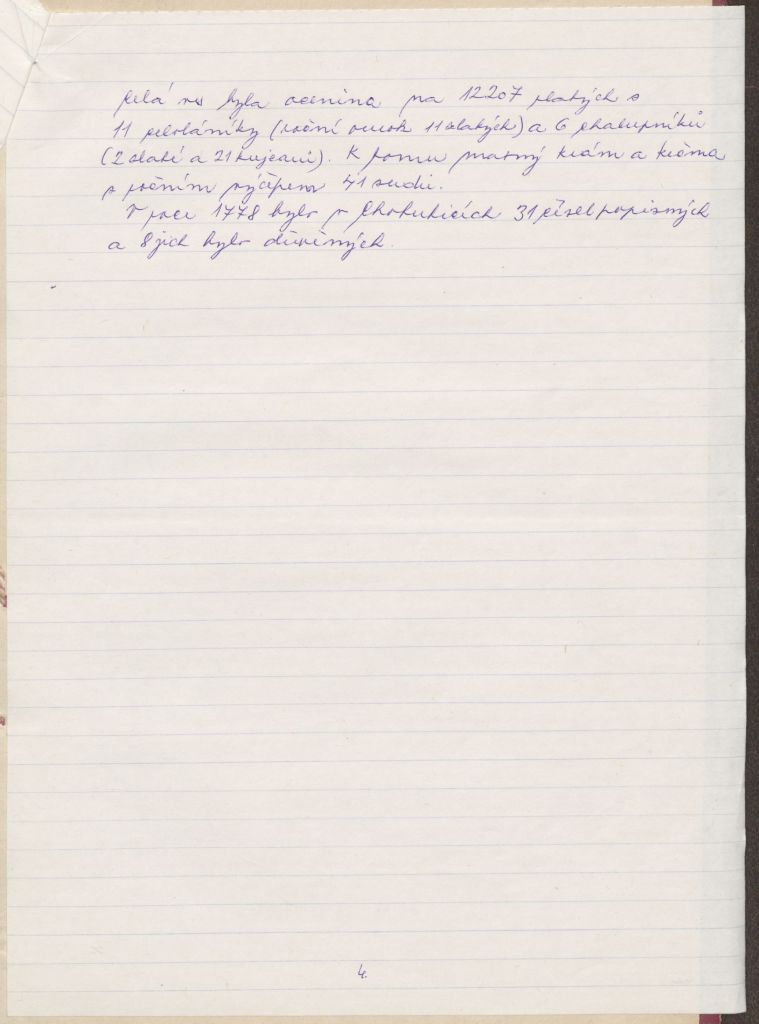 celá ves byla oceněna na 12207 zlatých s
11 celolániky (roční ourok 11 zlatých) a 6 chalupníků
(2 zlaté a 21 krejcarů). K tomu masný krám a krčma
s ročním výčepem 41 sudů.
V roce 1778 bylo v Chotuticích 31 čísel popisných
a 8 jich bylo dřevěných.
4.